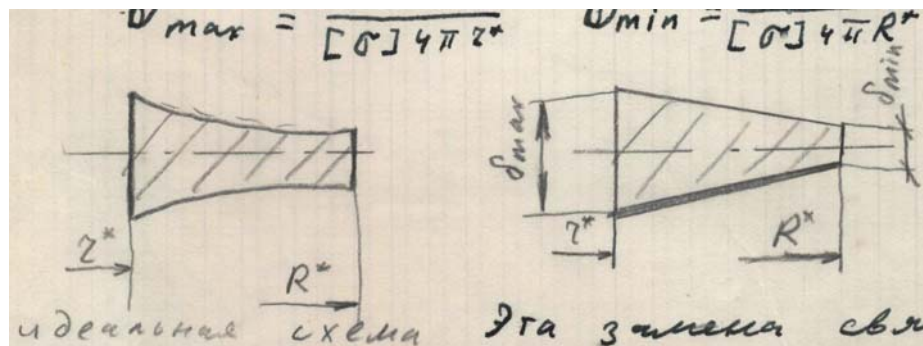 δmax = ‾[σ]4π r* δmin = ‾[σ]4πR*
δmax δmin
r* R* r* R*
идеальная схема Эта замена свя